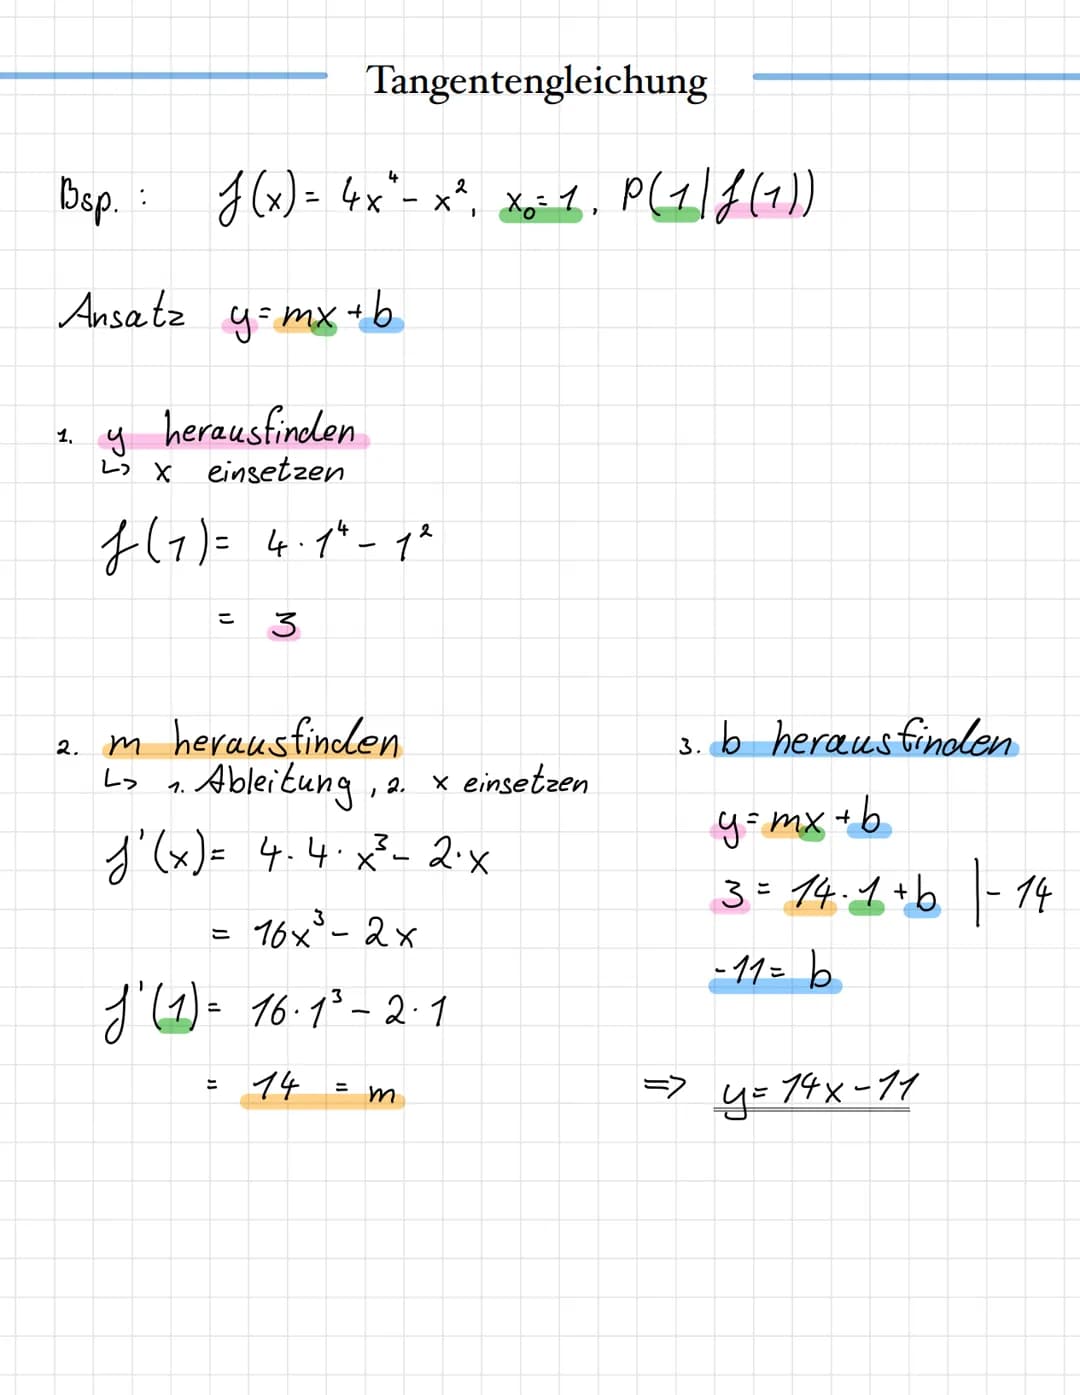 Tangentengleichung
Bsp. : f(x) = 4x⁴ - x², x₀ = 1, P(1|f(1))
Ansatz y = mx + b
1. y herausfinden
↳ x einsetzen
f(1) = 4 · 1⁴ - 1²
= 3
2. m herausfinden
↳ 1. Ableitung, 2. x einsetzen
f'(x) = 4 · 4 · x³ - 2 · x
= 16x³ - 2x
f'(1) = 16 · 1³ - 2 · 1
= 14 = m
3. b herausfinden
y = mx + b
3 = 14 · 1 + b | - 14
-11 = b
=> y = 14x - 11